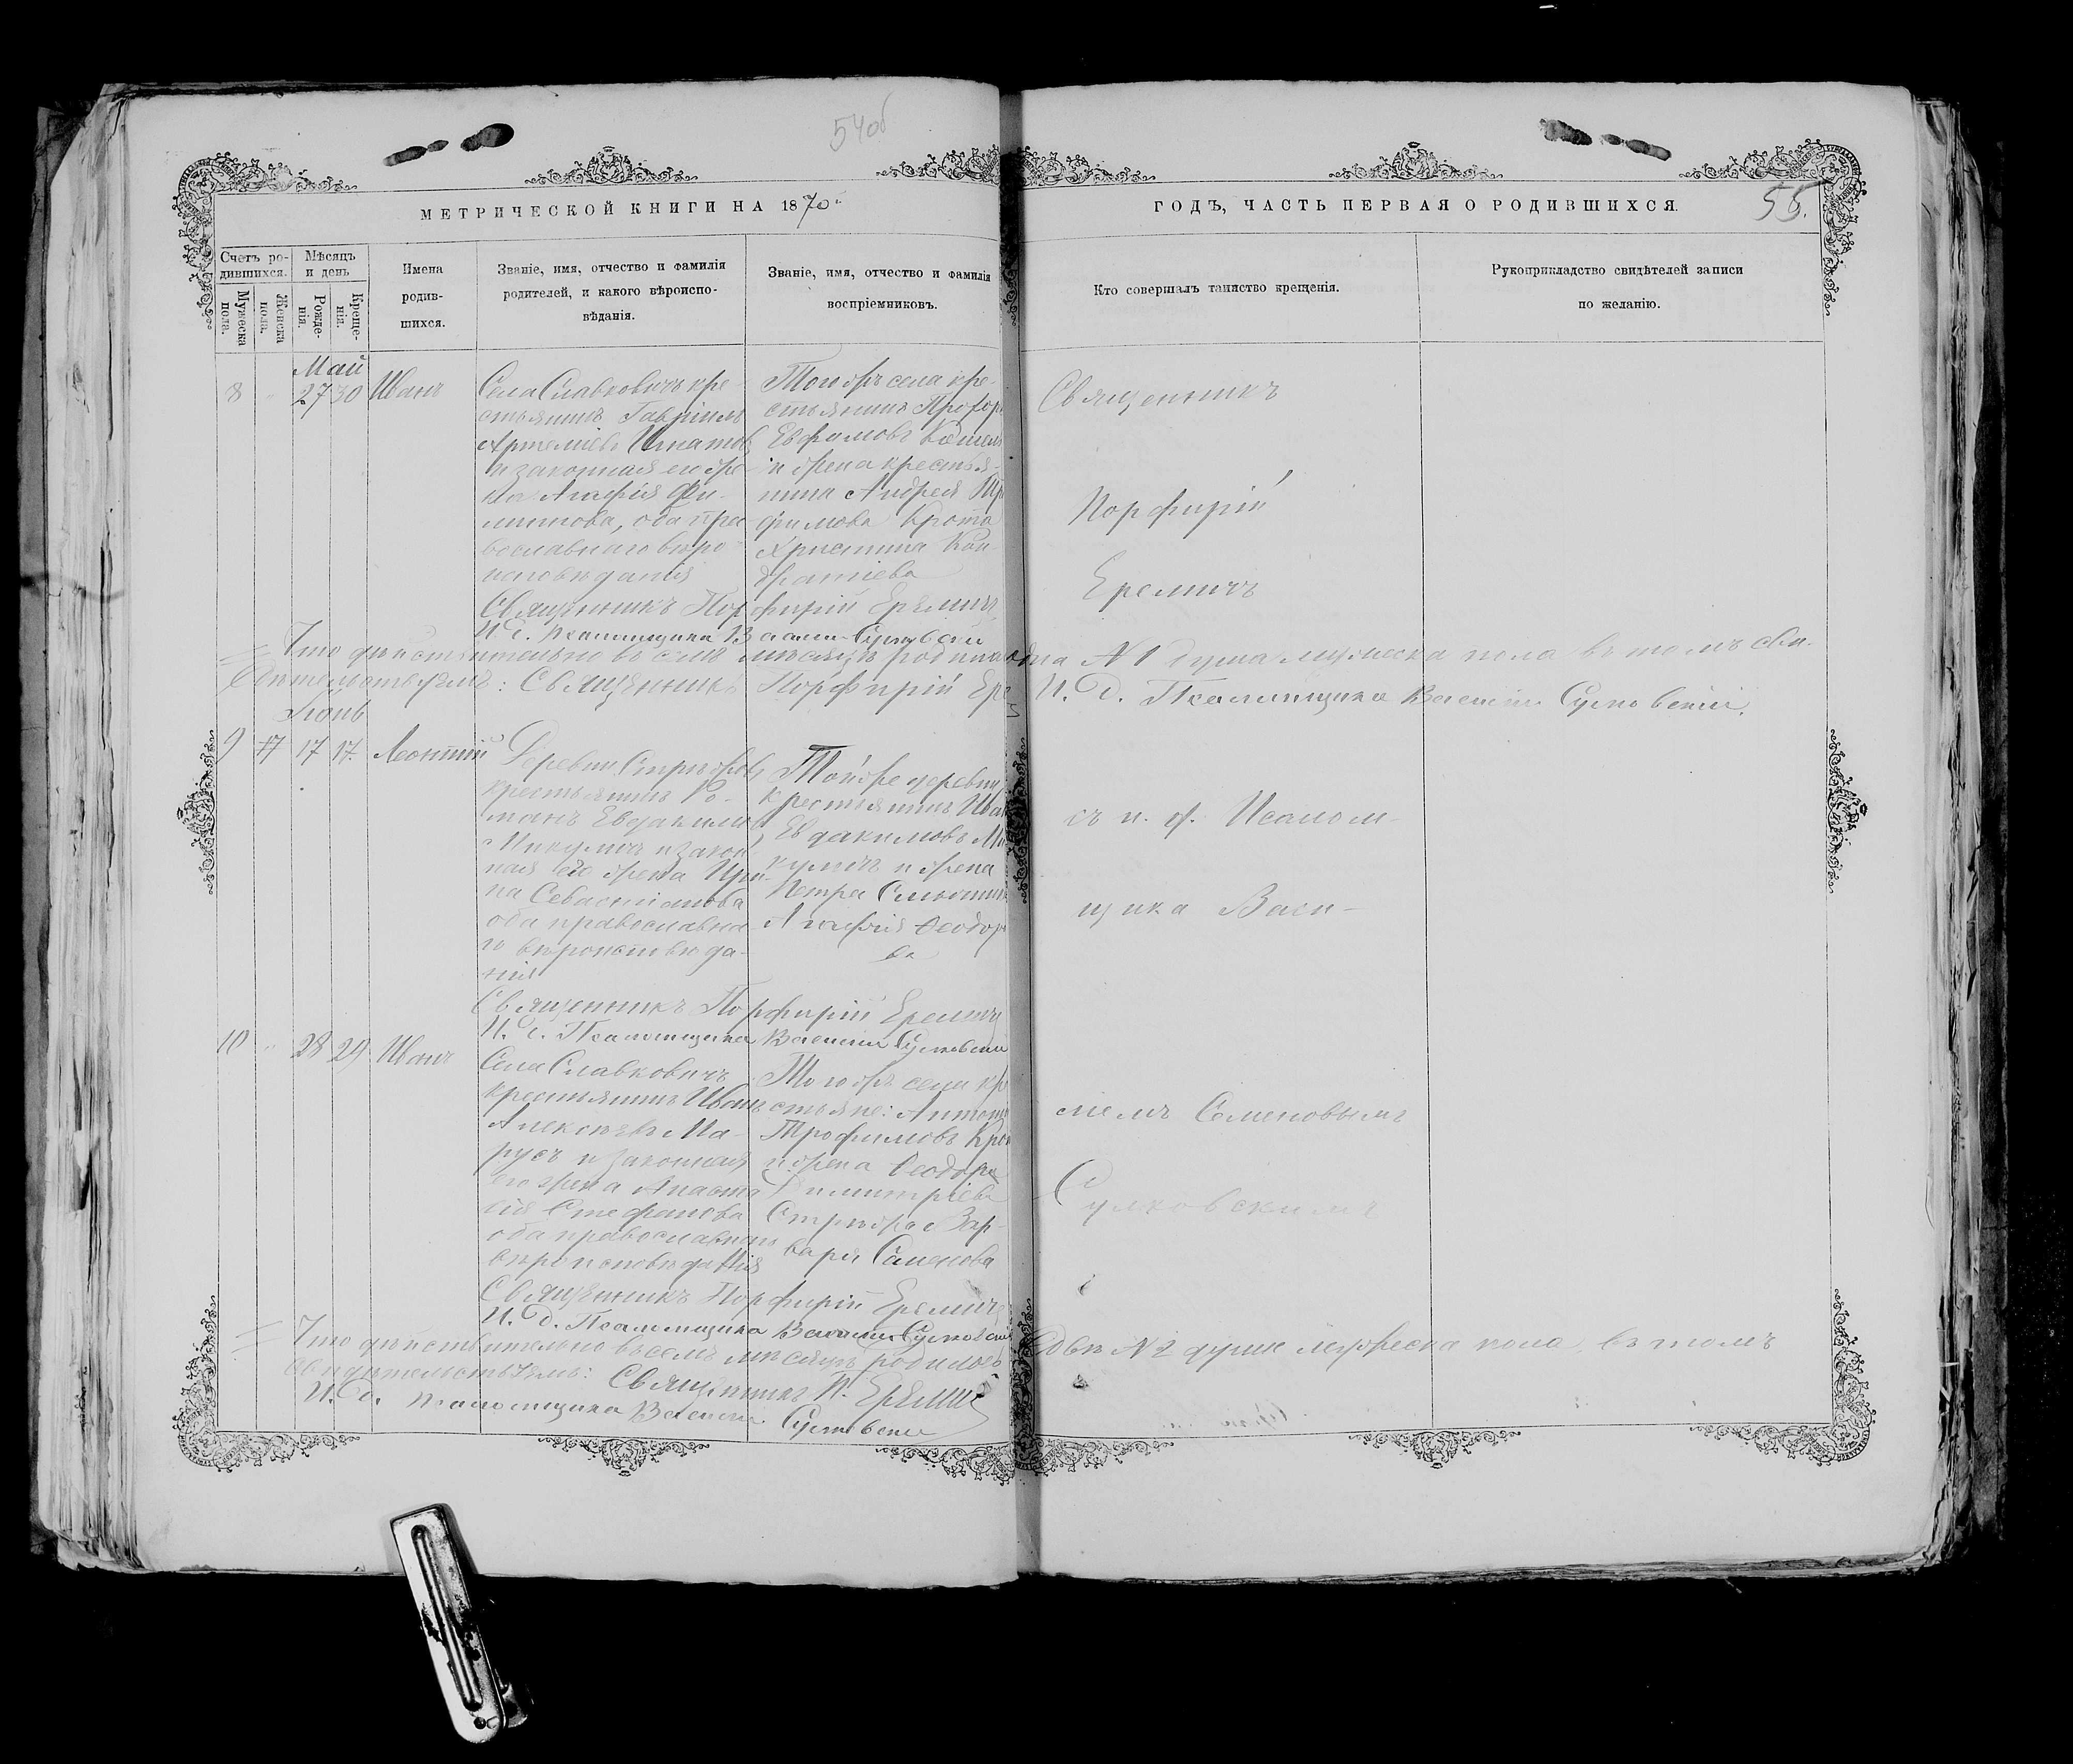 54об
55.
МЕТРИЧЕСКОЙ КНИГИ НА 1870й
ГОДЪ, ЧАСТЬ ПЕРВАЯ О РОДИВШИХСЯ.
Счетъ ро-
дившихся.
Мужеска
пола.
Женска
пола.
Мѣсяцъ
и день
Рожде-
нія.
Креще-
нія.
Имена
родив-
шихся.
Званіе, имя, отчество и фамилія
родителей, и какого вѣроиспо-
вѣданія.
Званіе, имя, отчество и фамилія
воспріемниковъ.
Кто совершалъ таинство крещенія.
Рукоприкладство свидѣтелей записи
по желанію.
Май
8 " 27 30 Иванъ
Села Славковичъ кре-
стьянинъ Гавріилъ
Артеміевъ Игнатов
и законная его же-
на Агафія Фи-
липпова, оба прав
вославнаго вѣро-
исповѣданія
Тогожъ села кре-
стьянинъ Прохоръ
Евфимовъ
и жена крестья-
нина Андрея Тр
фимова Крота
Христина Кон-
дратіева
Священникъ
Порфирій
Еремичъ
Священникъ Порфирій Еремичъ
И. д. Псаломщика Василій Сулковскій
Что дѣйствительно въ семъ мѣсяцѣ родилась одна № 1 душа мужеска пола въ томъ сви-
дѣтельствуемъ: Священникъ Порфирій Ере И. Д. Псаломщика Василій Сулковскій.
Іюнь
9 17 17 Леонтій
Деревни
крестьянинъ Ро-
манъ Евдакимов
Микуличъ и закон
ная его жена Ири-
на Севастіанова
оба православна
го вѣроисповѣда-
нія
Тойже деревни
крестьянинъ Иван
Евдакимовъ Ми
куличъ и жена
Петра
Агафія Ѳеодоро
ва
съ и. д. Псалом-
щика Васи-
ліемъ Семеновымъ
Сулковскимъ
Священникъ Порфирій Еремичъ
И. д. Псаломщика Василій Сулковскій
10 " 28 29 Иванъ
Села Славковичъ
крестьянинъ Иванъ
Алексѣевъ Ма-
русъ и законная
его жена Анаста
сія Стефанова
оба православнаго
вѣроисповѣданія
Тогожъ села кре
стьяне: Антоній
Трофимовъ Крот
и жена Ѳеодора
Димитріева
Стрижа Вар-
вара Семенова
Священникъ Порфирій Еремичъ
И. Д. Псаломщика Василій Сулковскій
Что дѣйствительно въ семъ мѣсяцѣ родилось двѣ № 2 души мужеска пола, въ томъ
свидѣтельствуемъ: Священникъ П. Еремичъ
И. Д. Псаломщика Василій Сулковскій